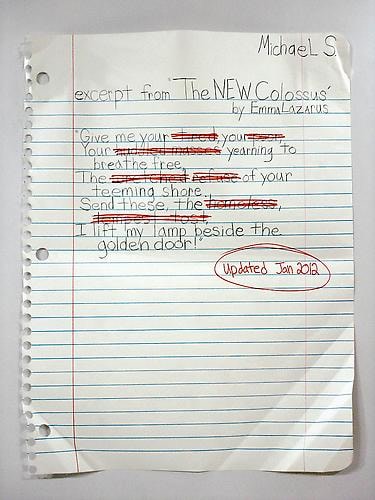 Michael S.
excerpt from 'The NEW Colossus'
by Emma Lazarus
"Give me your tired, your poor
Your huddled masses yearning to
breathe free,
The wretched refuse of your
teeming shore.
Send these, the homeless,
tempest-tost,
I lift my lamp beside the
golden door!"
Updated Jan 2012